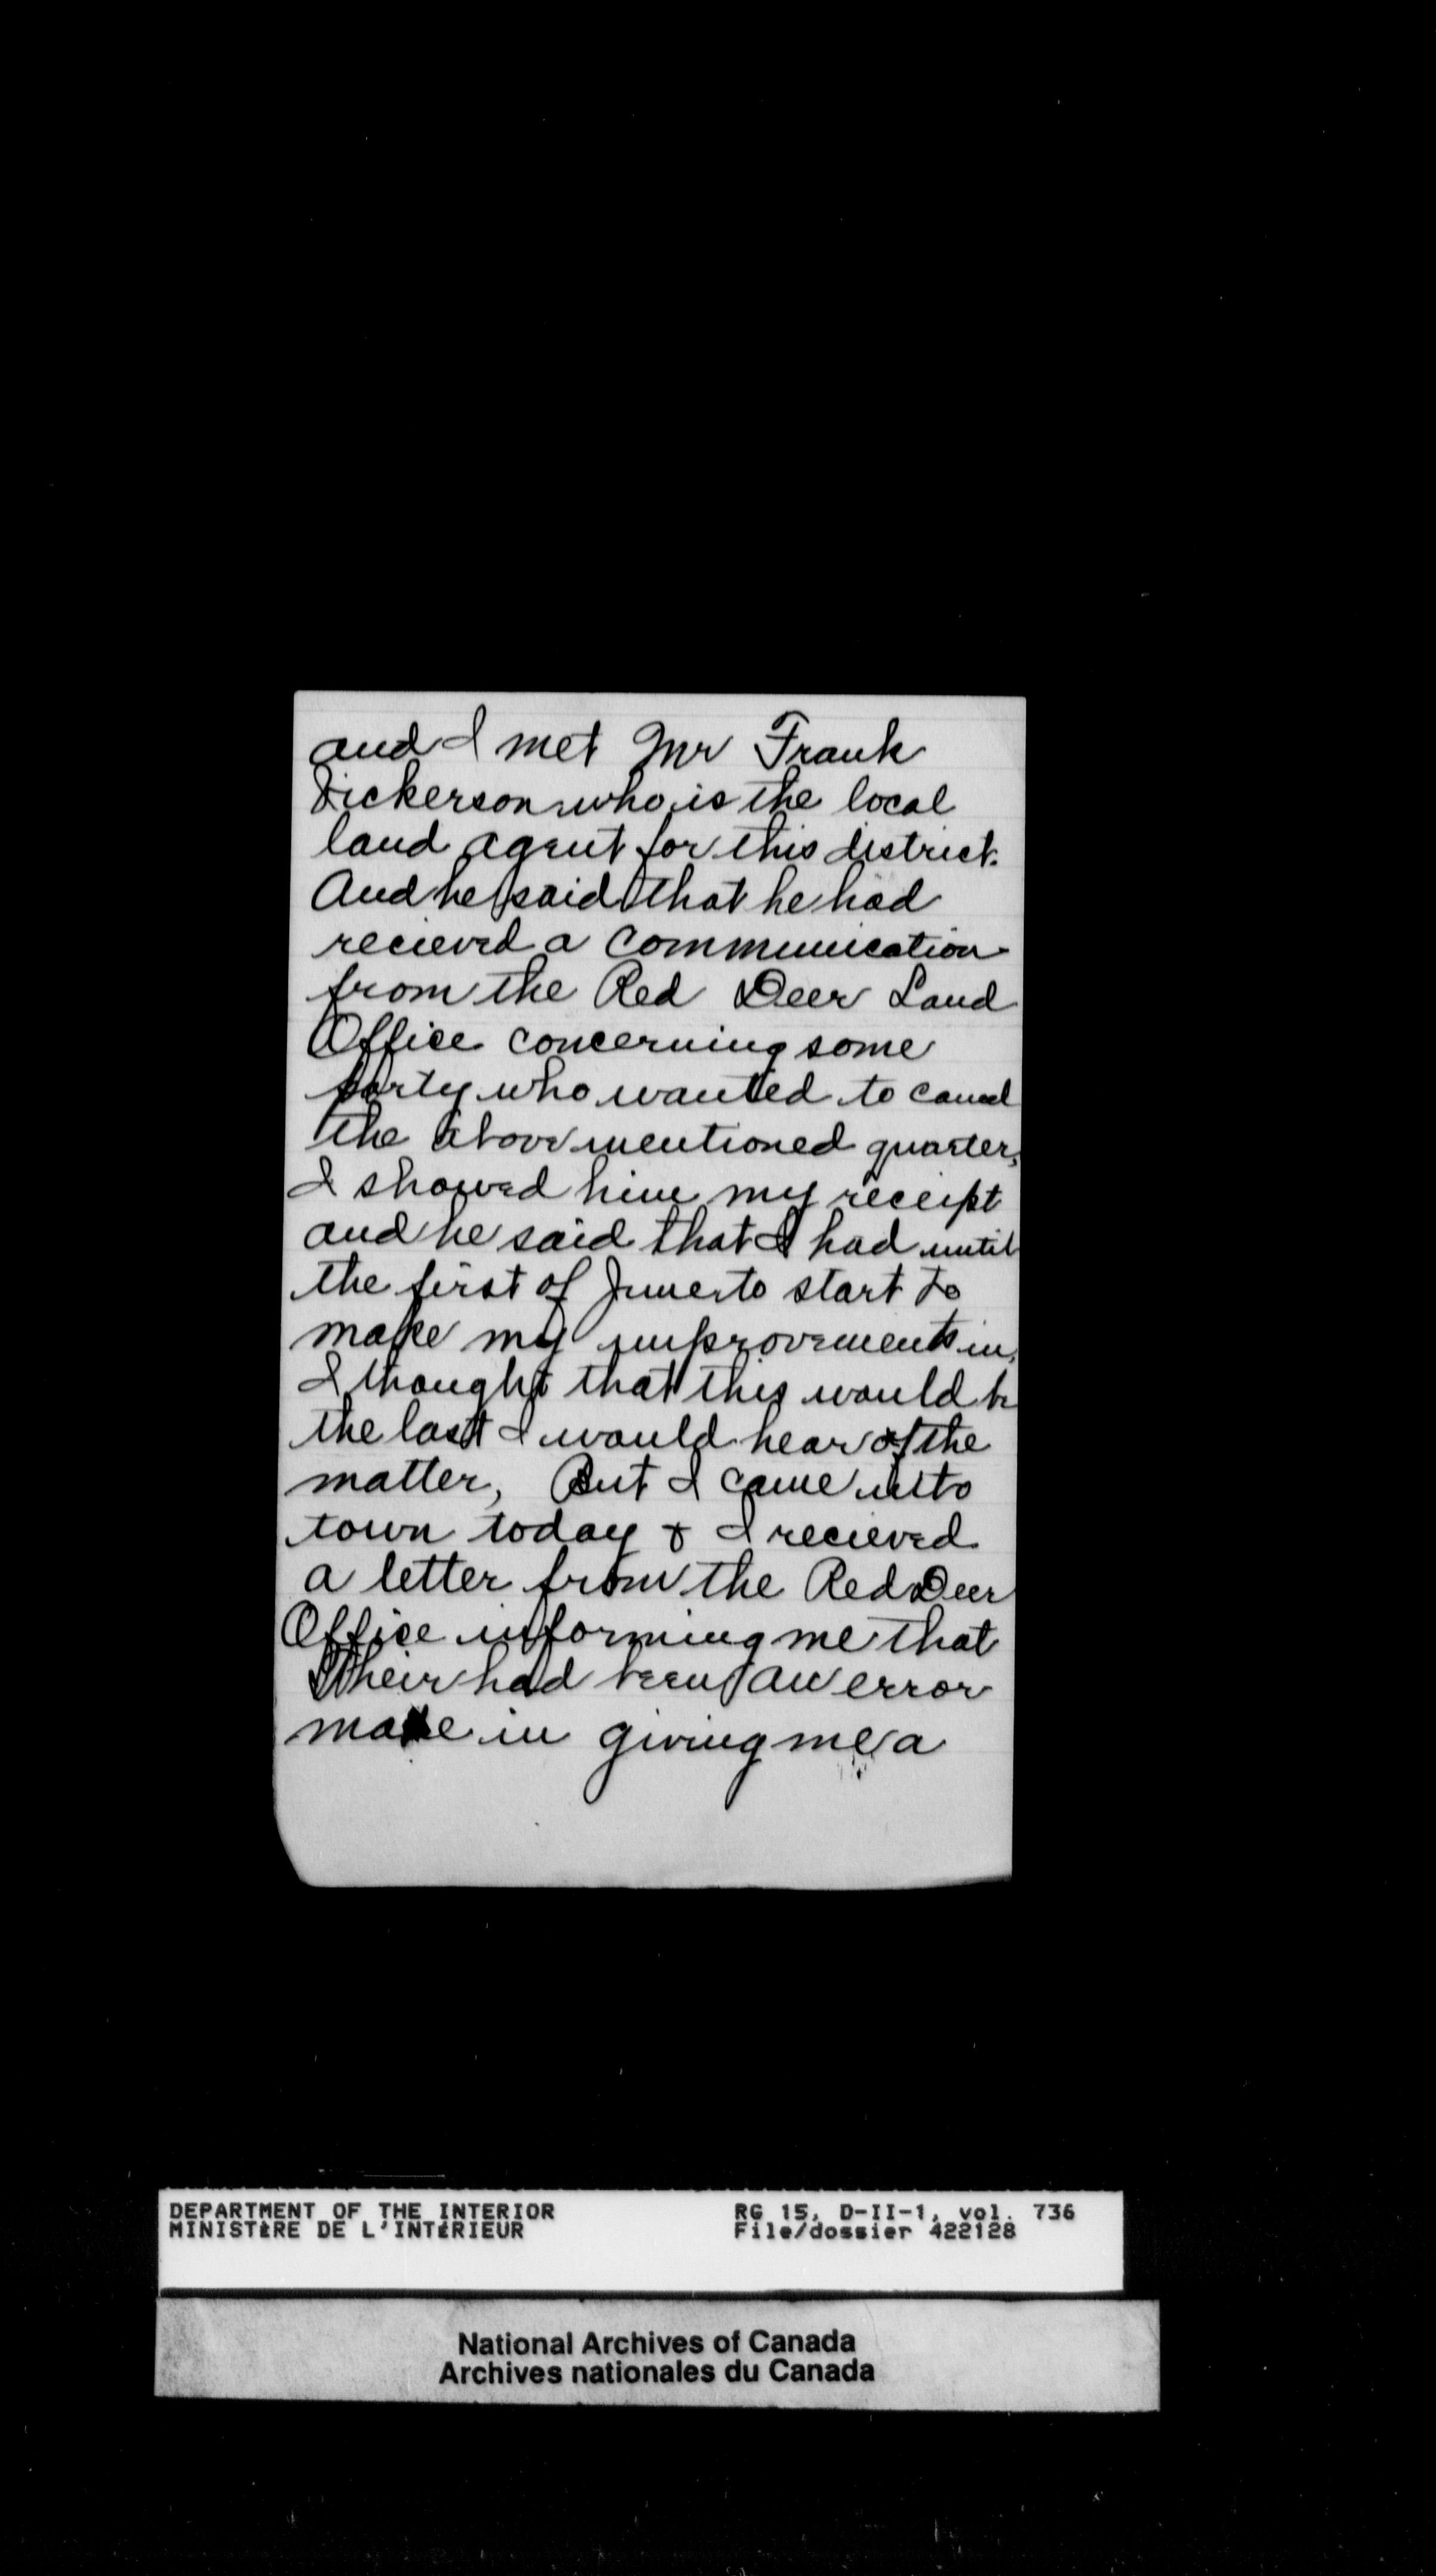 and I met Mr Frank
Dickerson who is the local
land agent for this district.
And he said that he had
recieved a communication
from the Red Deer Land
Office concerning some
party who wanted to cancel
the above mentioned quarter,
I showed him my receipt
and he said that I had until
the first of June to start to
make my improvements in,
I thought that this would be
the last I would hear of the
matter, But I came into
town today & I recieved
a letter from the Red Deer
Office informing me that
their had been an error
made in giving me a
DEPARTMENT OF THE INTERIOR RG 15, D-II-1, vol. 736
MINISTÈRE DE L'INTÉRIEUR File/dossier 422128
National Archives of Canada
Archives nationales du Canada